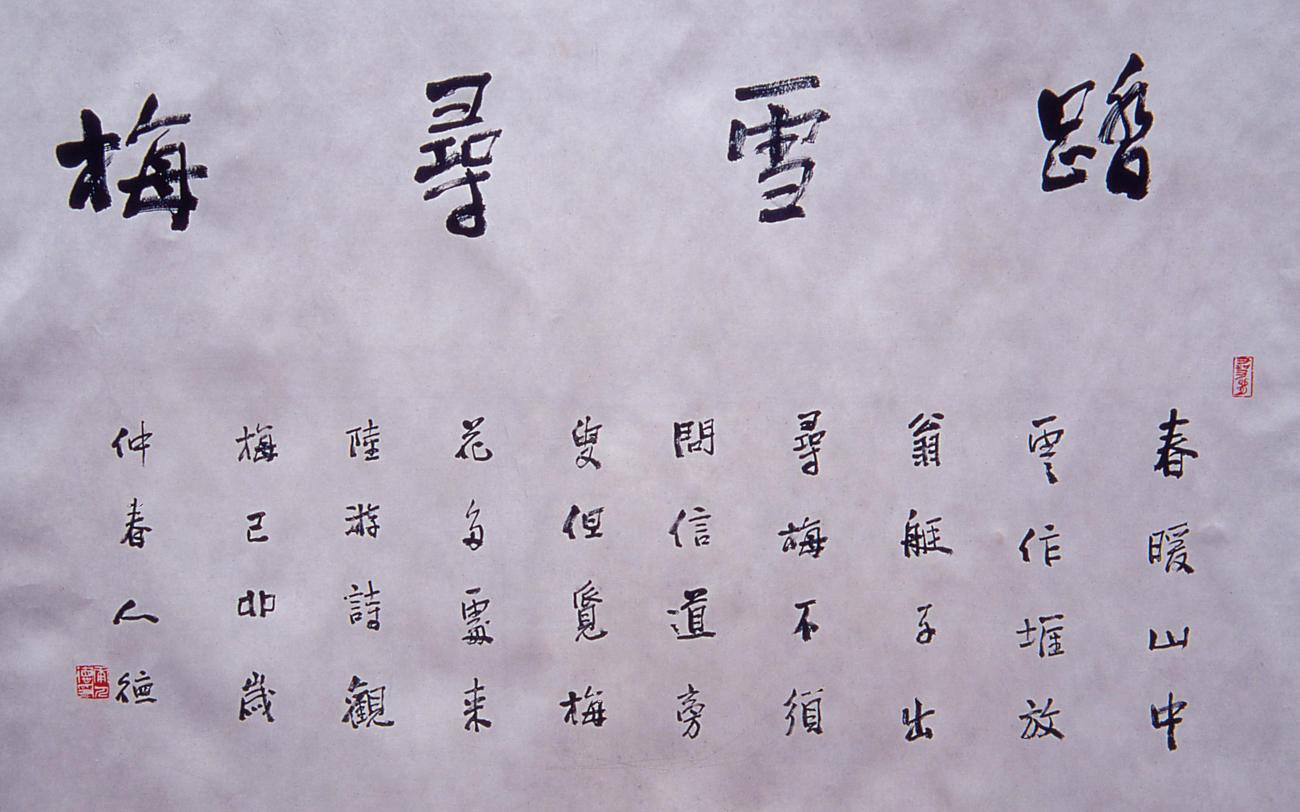 踏雪尋梅
春暖山中
雲作堆放
翁艇子出
尋梅不須
問信道旁
叟但覓梅
花多處来
陸游詩觀
梅己卯歲
仲春人德